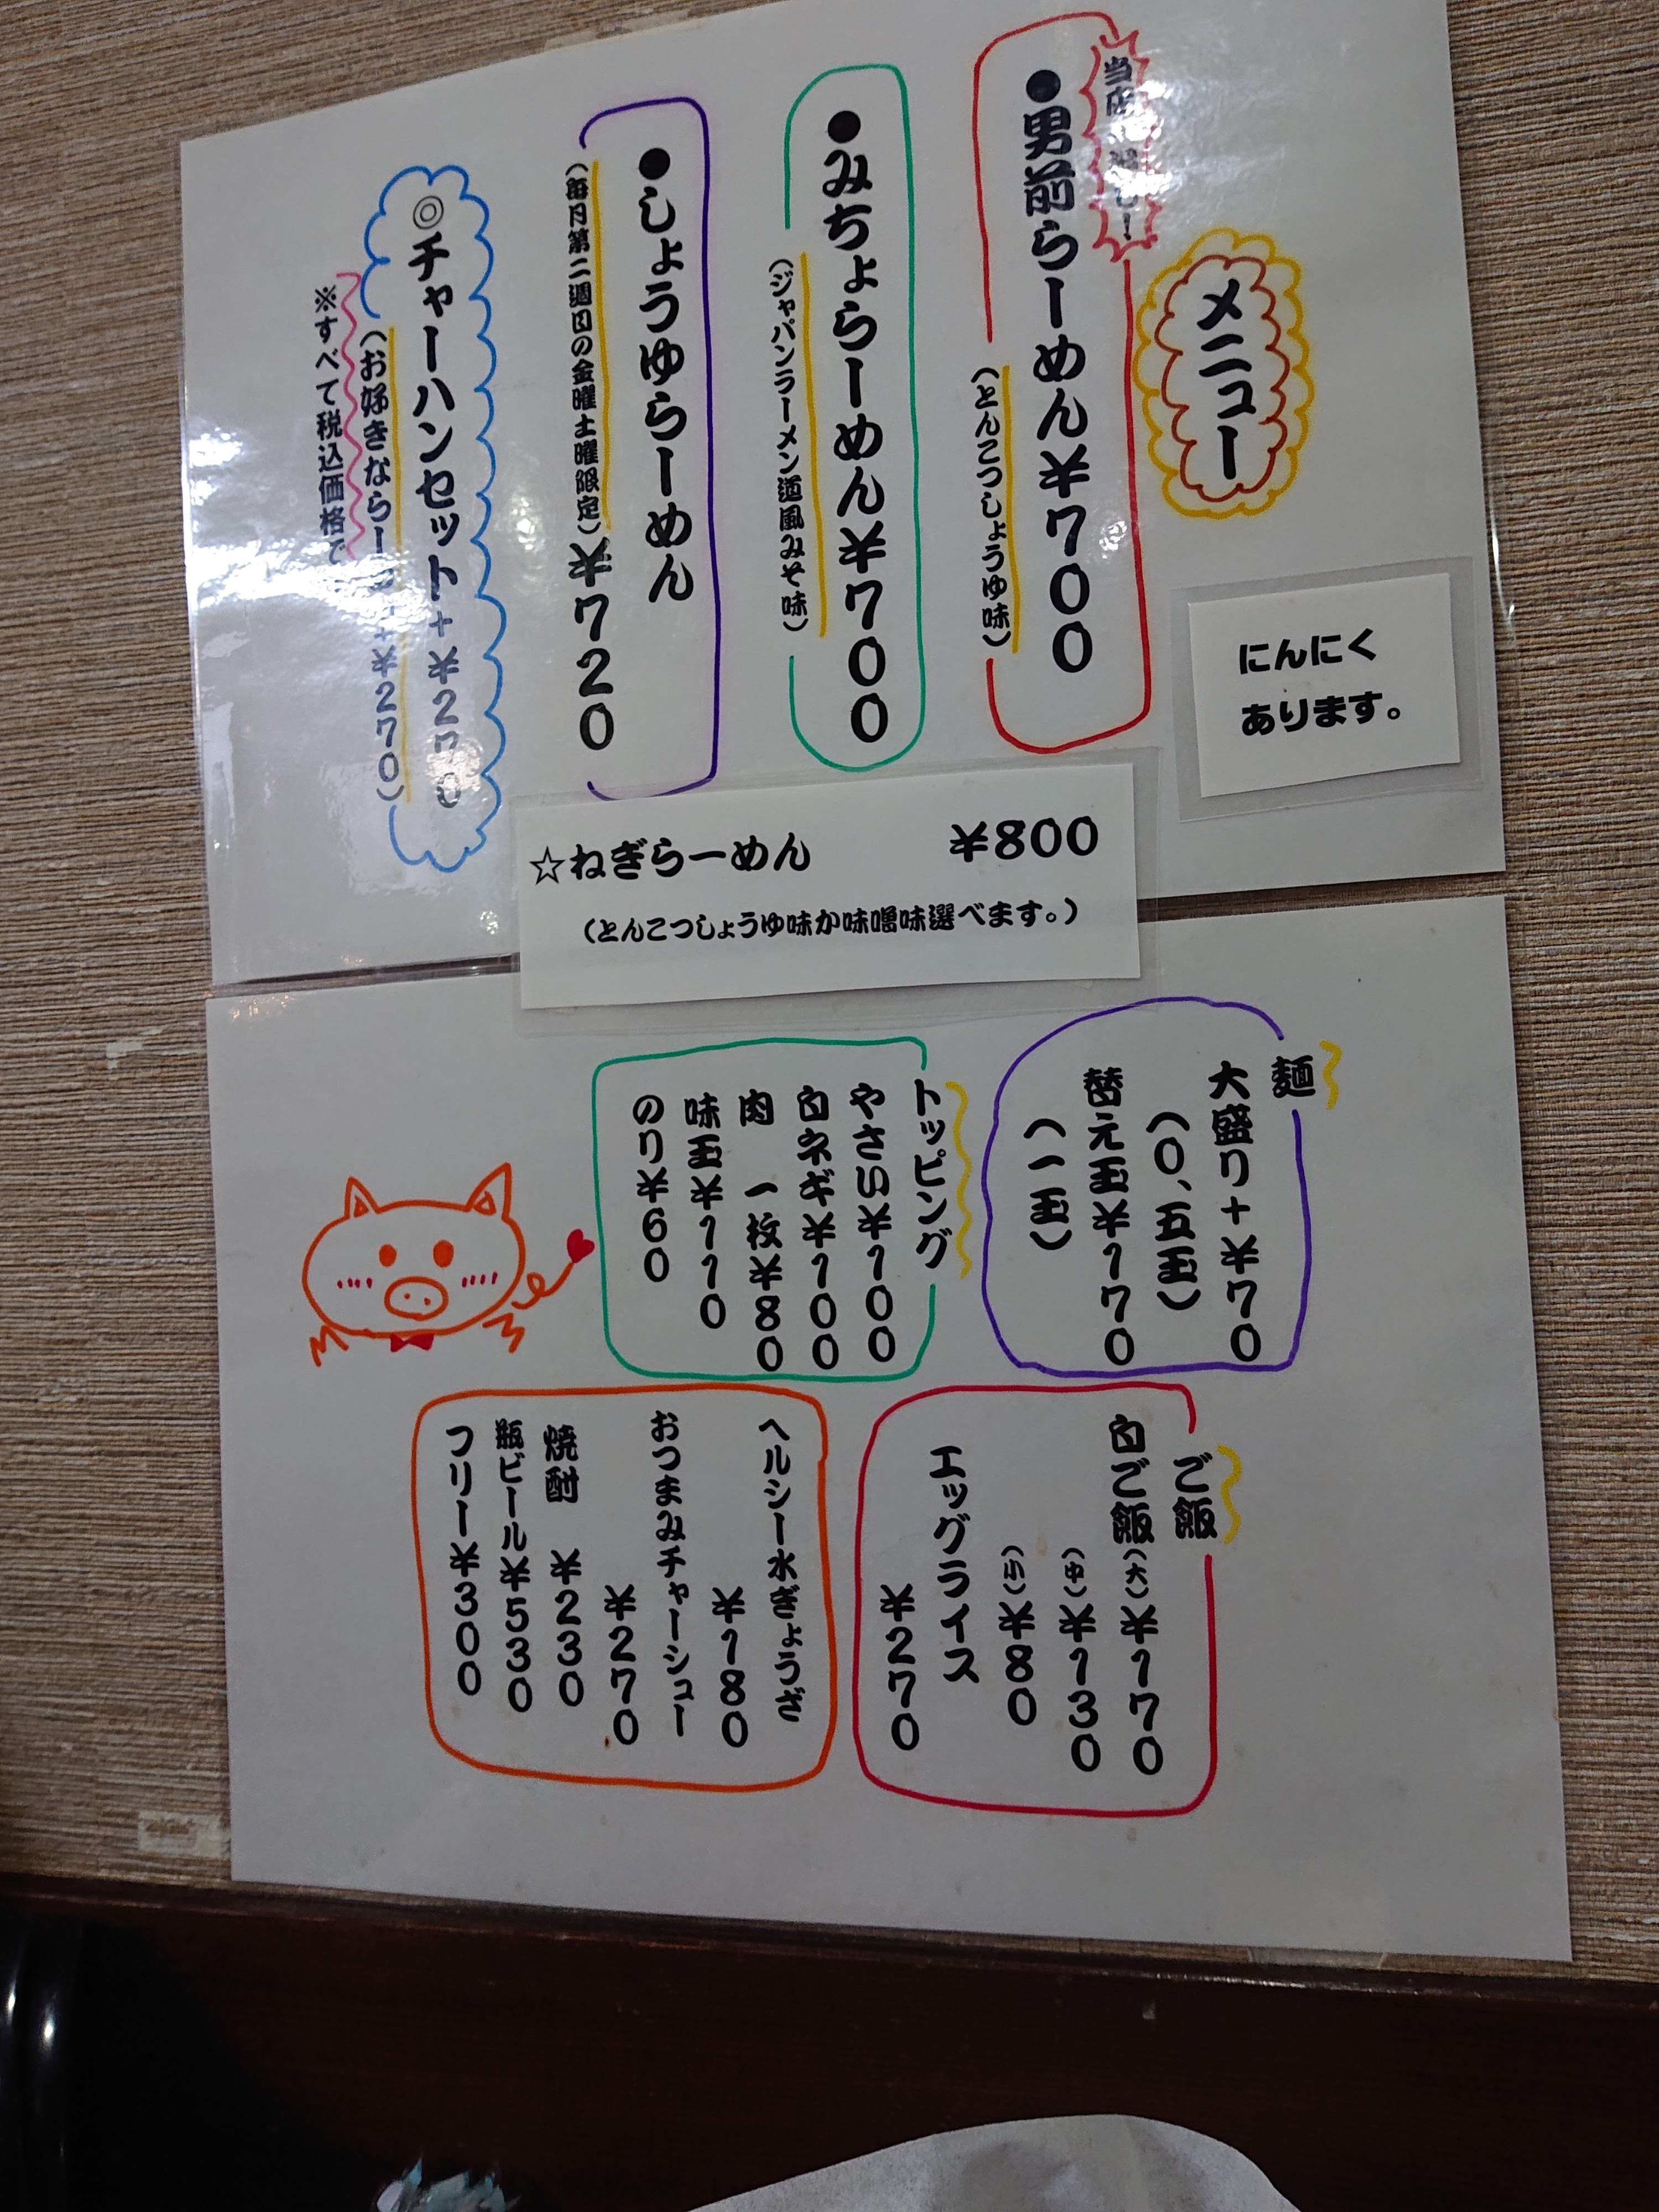 メニュー
にんにく
あります。
当店
●男前らーめん¥700
(とんこつしょうゆ味)
●みちょらーめん¥700
(ジャパンラーメン道風みそ味)
●しょうゆらーめん
(毎月第二週目の金曜土曜限定)¥720
◎チャーハンセット+¥270
(お好きならー+¥270)
※すべて税込価格で
☆ねぎらーめん ¥800
(とんこつしょうゆ味か味噌味選べます。)
麺
大盛り+¥70
(0、五玉)
替え玉¥170
(一玉)
トッピング
やさい¥100
白ネギ¥100
肉 一枚¥80
味玉¥110
のり¥60
ご飯
白ご飯(大)¥170
(中)¥130
(小)¥80
エッグライス
¥270
ヘルシー水ぎょうざ
¥180
おつまみチャーシュー
¥270
焼酎 ¥230
瓶ビール¥530
フリー¥300